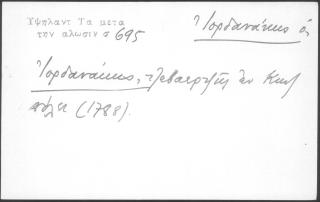 Υψηλαντ Τα μετα
την αλωσιν σ 695
Ἰορδανάκης ὁ
Ἰορδανάκης, τζεβαερτζῆς ἐν Κων
πόλει (1788).